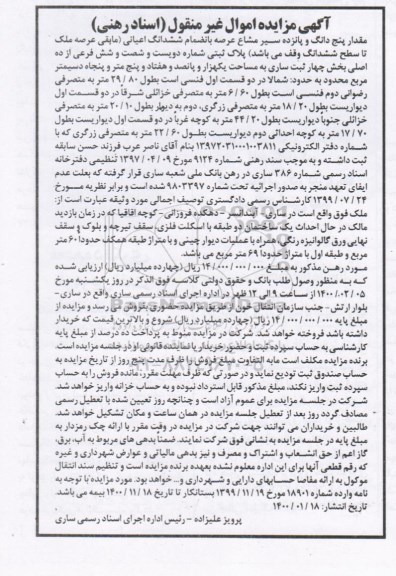 آگهی مزایده اموال غیر منقول (اسناد رهنی)
مقدار پنج دانگ و پانزده سیر مشاع عرصه بانضمام ششدانگ اعیانی (مابقی عرصه ملک
تا سطح ششدانگ وقف می باشد) پلاک ثبتی شماره دویست و شصت و شش فرعی از ده
اصلی بخش چهار ثبت ساری به مساحت یکهزار و پانصد و هفتاد و پنج متر و پنجاه دسیمتر
مربع محدود به حدود: شمالا در دو قسمت اول فنسی است بطول ۸۰ / ۲۹ متر به متصرفی
رضوانی دوم فنسی است بطول ۶۰ / ۶ متر به متصرفی خزائی شرقاً در دو قسمت اول
دیواریست بطول ۲۰ / ۱۸ متر به متصرفی زرگری، دوم به دیوار بطول ۱۰ / ۲۰ متر به متصرفی
خزائلی جنوباً دیواریست بطول ۲۰ / ۴۴ متر به کوچه غرباً در دو قسمت اول دیواریست بطول
۷۰ / ۱۷ متر به کوچه احداثی دوم دیواریست بطول ۶۰ / ۲۲ متر به متصرفی زرگری که با
شماره دفتر الکترونیکی ۱۳۹۷۲۰۳۱۰۰۰۱۰۰۳۸۱۱ بنام آقای ناصر عرب فرزند حسن سابقه
ثبت داشته و به موجب سند رهنی شماره ۹۱۲۴ مورخ ۰۹ / ۰۴ / ۱۳۹۷ تنظیمی دفترخانه
اسناد رسمی شماره ۳۸۶ ساری در رهن بانک ملی شعبه ساری قرار گرفته که بعلت عدم
ایفای تعهد منجر به صدور اجرائیه تحت شماره ۹۸۰۳۳۹۷ شده است و برابر نظریه مورخ
۲۴ / ۰۷ / ۱۳۹۹ کارشناس رسمی دادگستری توصیف اجمالی مورد وثیقه عبارت است از:
ملک فوق واقع است در ساری - ابتدائی - دهکده فروزانی - کوچه اقاقیا که در زمان بازدید
مالک در حال احداث یک ساختمان دو طبقه با اسکلت فلزی، سقف تیرچه و بلوک و سقف
نهایی ورق گالوانیزه رنگی، همراه با عملیات دیوار چینی و با متراژ طبقه همکف حدودا ۶۰ متر
مربع و طبقه اول با متراژ حدودا ۶۹ متر مربع می باشد.
مورد رهن مذکور به مبلغ ۰۰۰ / ۰۰۰ / ۰۰۰ / ۱۴ ریال (چهارده میلیارد ریال) ارزیابی شده
که به منظور وصول طلب بانک و حقوق دولتی کلاسه فوق الذکر در روز یکشنبه مورخ
۰۵ / ۰۲ / ۱۴۰۰ از ساعت ۹ الی ۱۲ ظهر در اداره اجرای اسناد رسمی ساری واقع در ساری -
بلوار ارتش - جنب سازمان انتقال خون از طریق مزایده حضوری بفروش می رسد و مزایده از
مبلغ پایه ۰۰۰ / ۰۰۰ / ۰۰۰ / ۱۴ ریال (چهارده میلیارد ریال) شروع و بالاترین قیمت که خریدار
داشته باشد فروخته خواهد شد. شرکت در مزایده منوط به پرداخت ده درصد از مبلغ پایه
کارشناسی به حساب سپرده ثبت و حضور خریدار یا نماینده قانونی او در جلسه مزایده است.
برنده مزایده مکلف است مابه التفاوت مبلغ فروش را ظرف مدت پنج روز از تاریخ مزایده به
حساب صندوق ثبت تودیع نماید و در صورتی که ظرف مهلت مقرر، مانده فروش را به حساب
سپرده ثبت واریز نکند، مبلغ مذکور قابل استرداد نبوده و به حساب خزانه واریز خواهد شد.
شرکت در جلسه مزایده برای عموم آزاد است و چنانچه روز تعیین شده با تعطیل رسمی
مصادف گردد روز بعد از تعطیل جلسه مزایده در همان ساعت و مکان تشکیل خواهد شد.
طالبین و خریداران می توانند جهت شرکت در مزایده در وقت مقرر با ارائه چک رمزدار به
مبلغ پایه در جلسه مزایده به نشانی فوق شرکت نمایند. ضمنا بدهی های مربوط به آب، برق،
گاز اعم از حق انشعاب و اشتراک و مصرف و نیز بدهی مالیاتی و عوارض شهرداری و غیره
که رقم قطعی آنها برای این اداره معلوم نشده بعهده برنده مزایده است و تنظیم سند انتقال
موکول به ارائه مفاصا حسابهای دارایی و شهرداری و... خواهد بود. مورد مزایده با توجه به
نامه وارده شماره ۱۸۹۰۱ مورخ ۱۹ / ۱۱ / ۱۳۹۹ بستانکار تا تاریخ ۱۸ / ۱۱ / ۱۴۰۰ بیمه می باشد.
تاریخ انتشار: ۱۸ / ۰۱ / ۱۴۰۰
پرویز علیزاده - رئیس اداره اجرای اسناد رسمی ساری